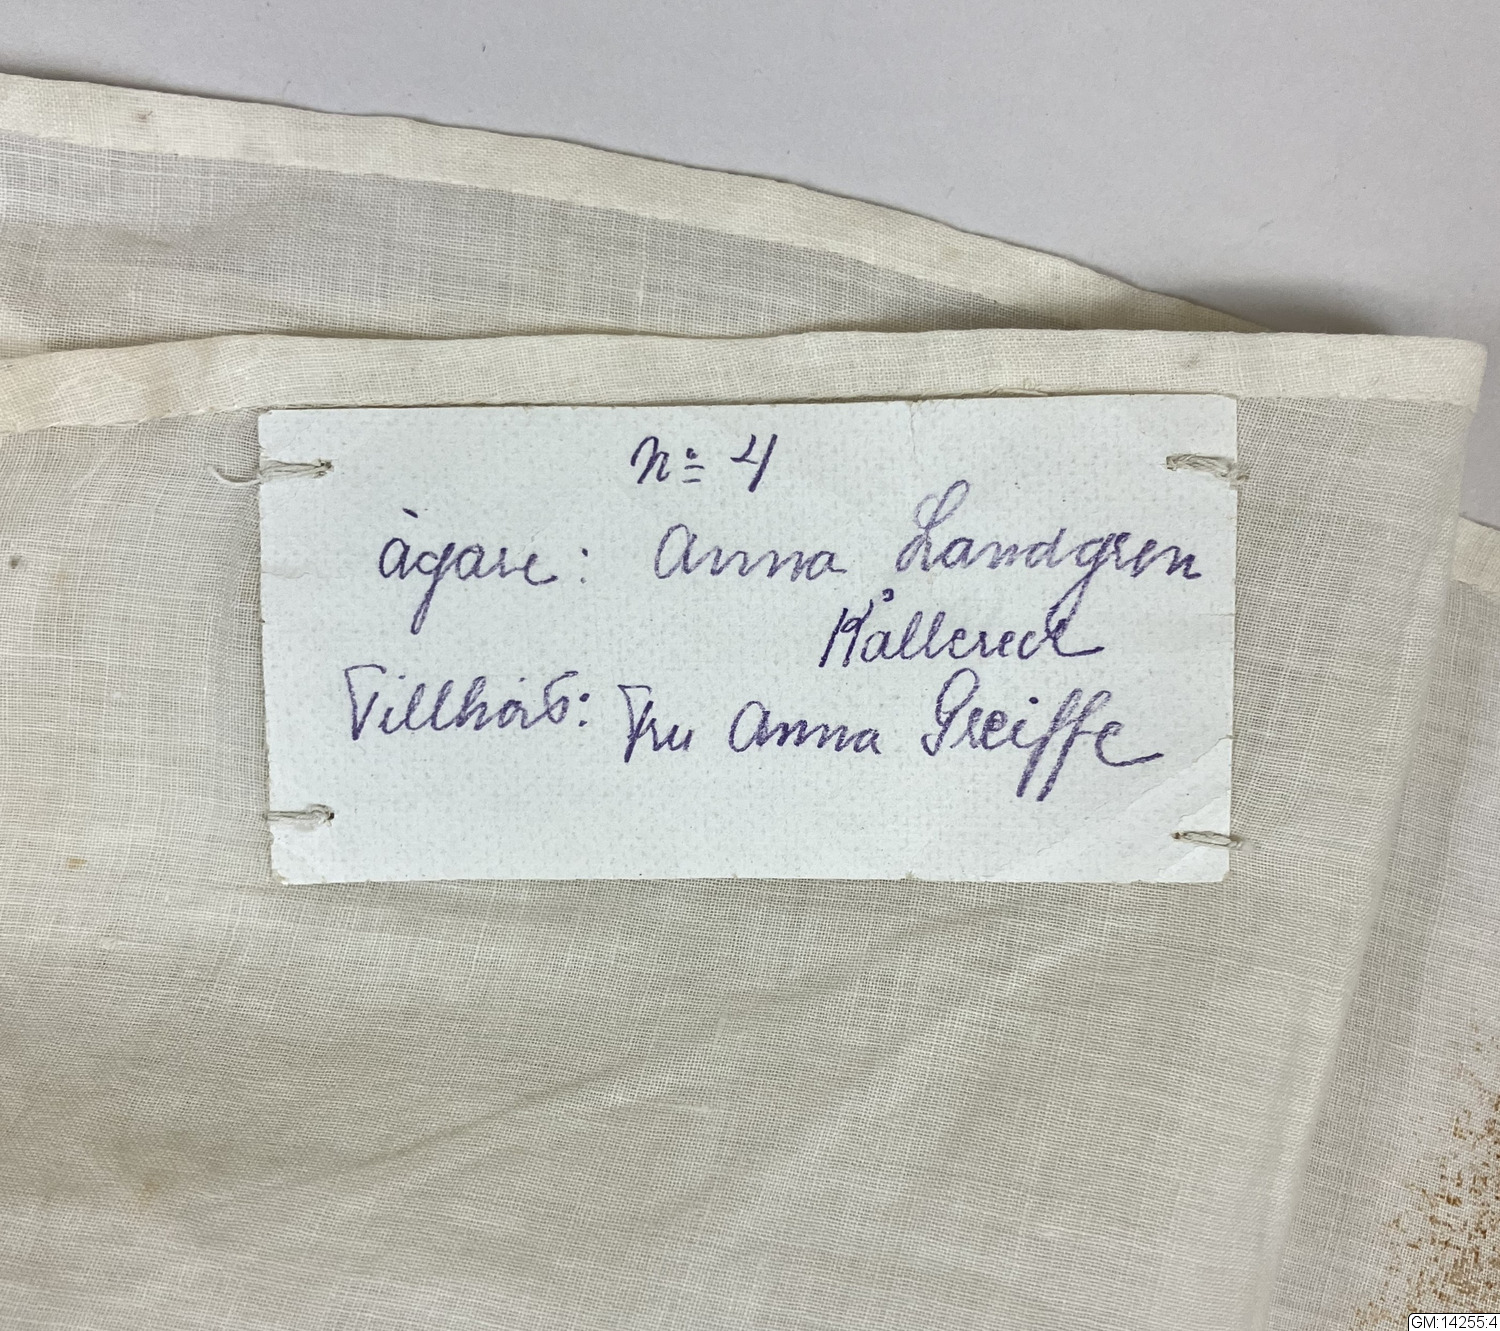 No 4
ägare: Anna Landgren
Kållered
Tillhört: Fru Anna Greiffe
GM:14255:4